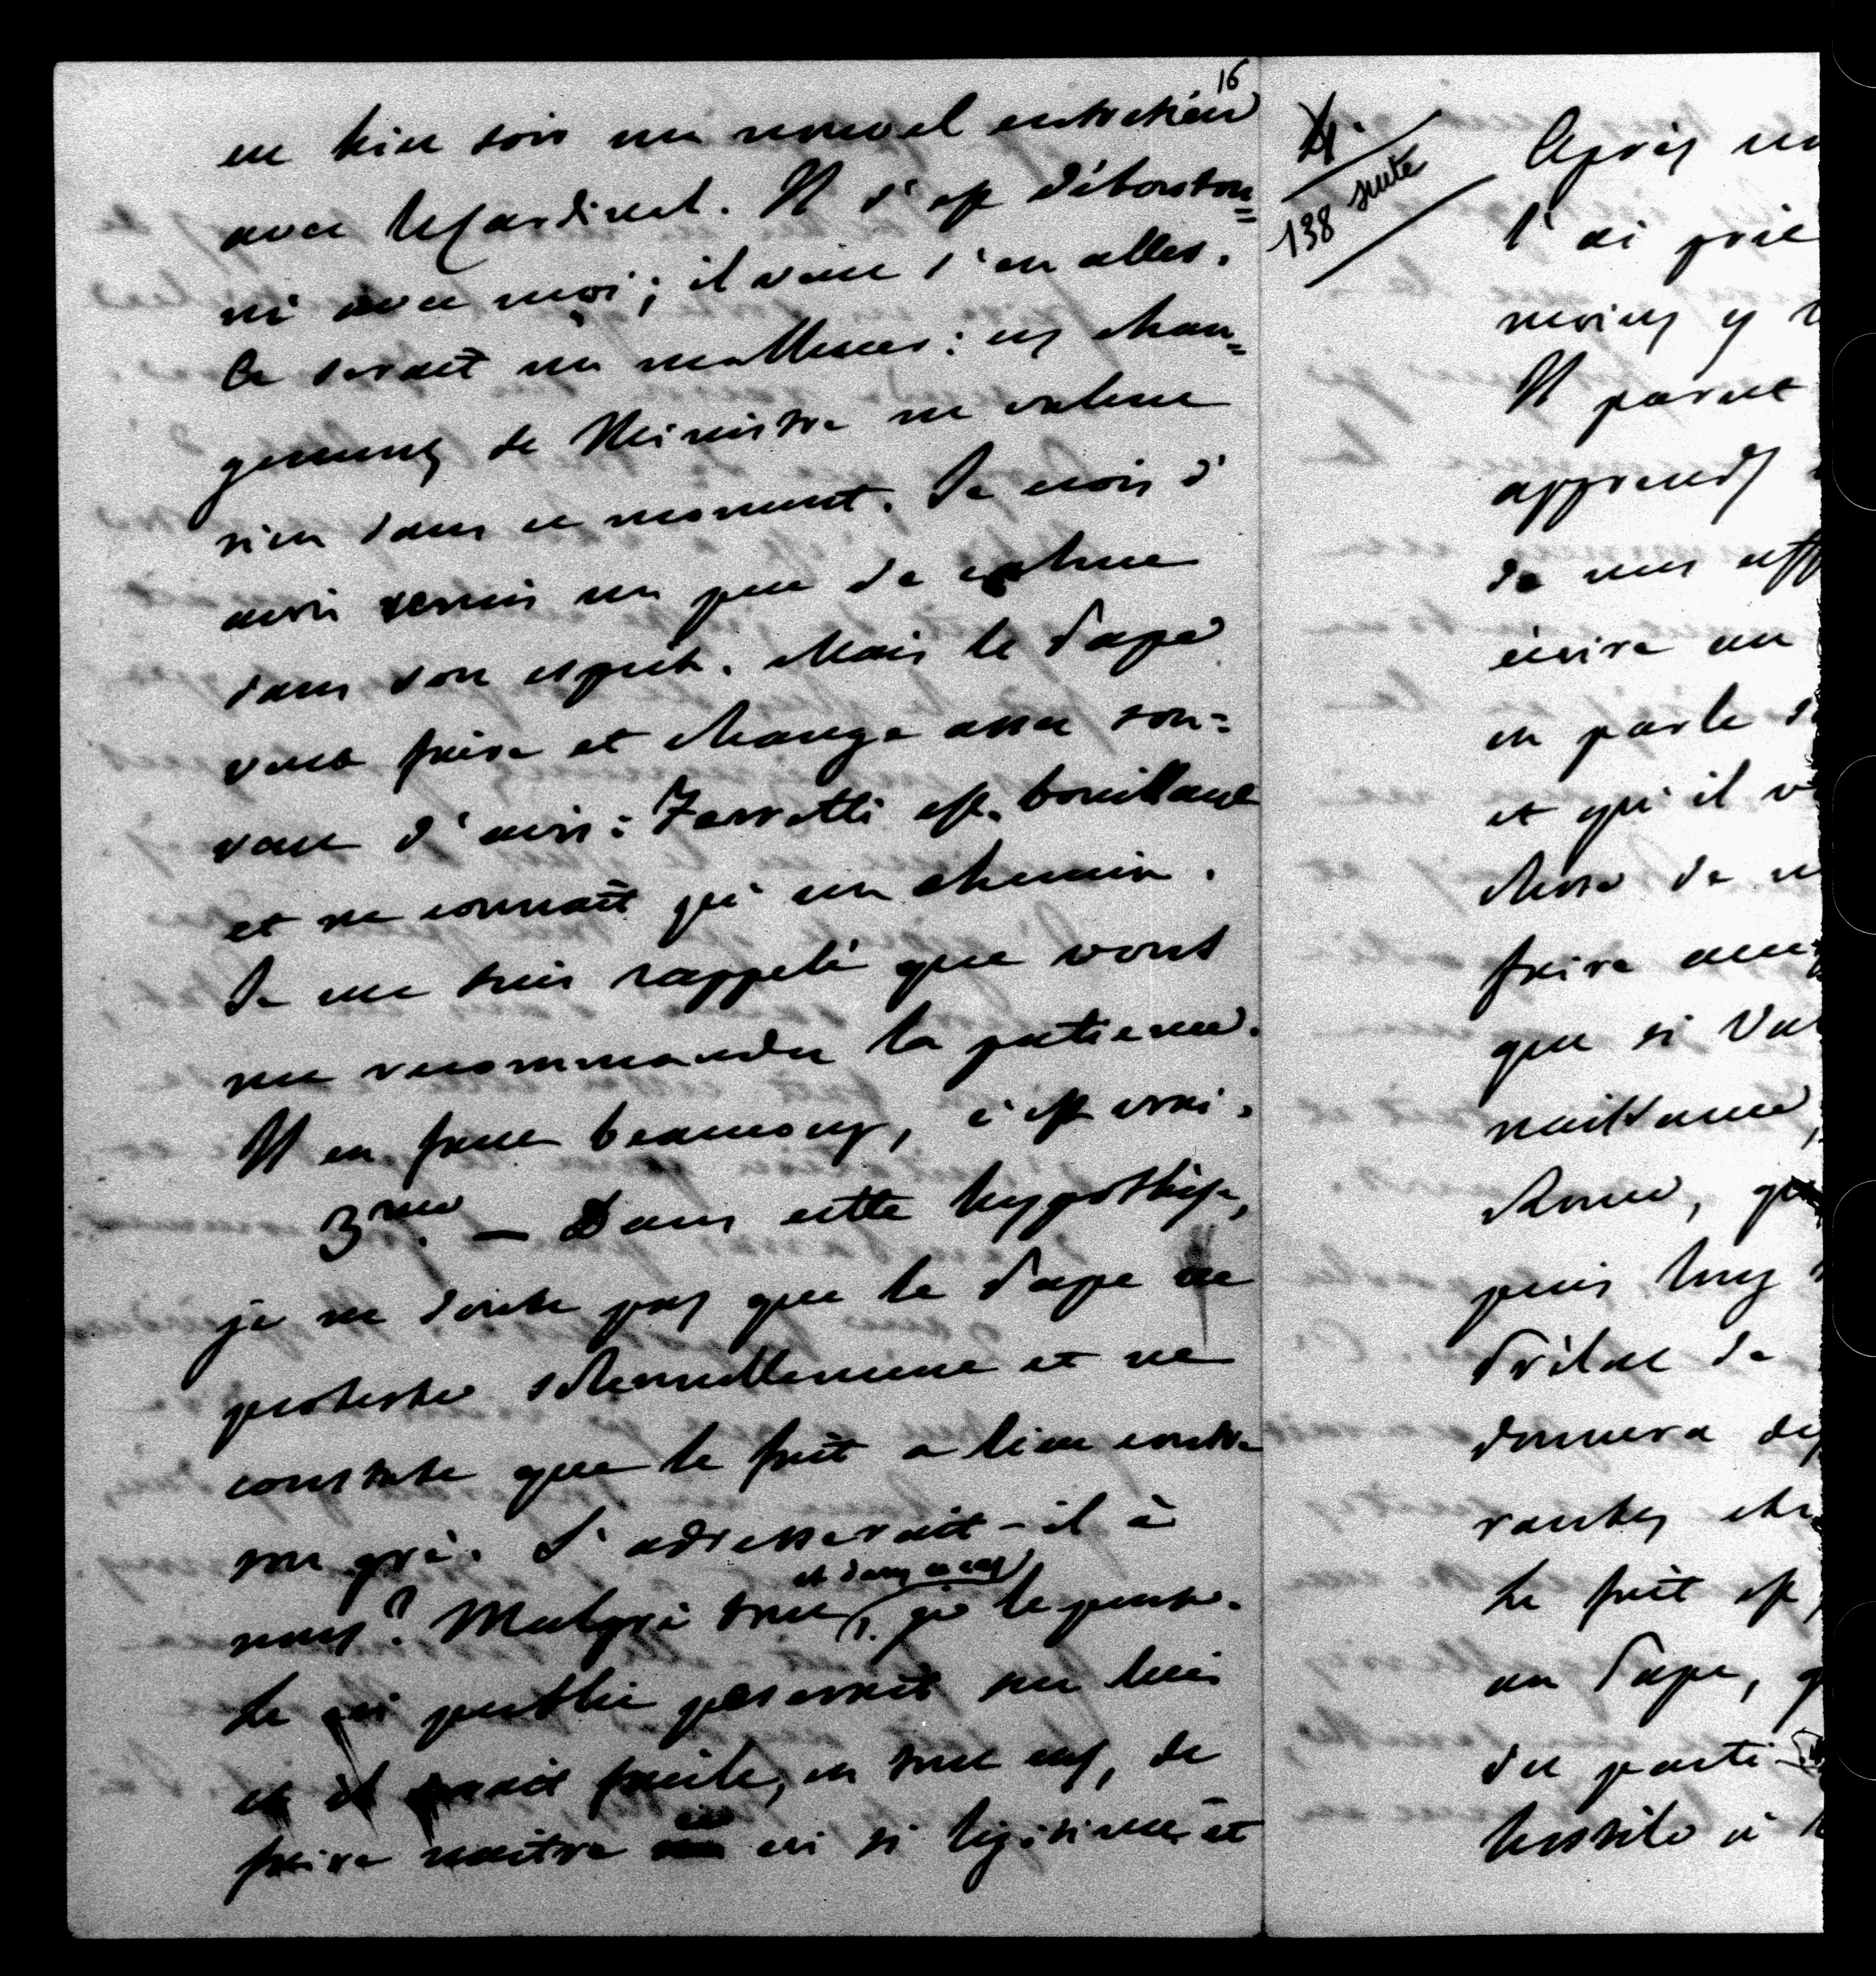 16
eu hier soir un nouvel entretien
avec le Cardinal. Il s'est débouton=
né avec moi; il veut s'en aller.
Ce serait un malheur: ces chan=
gemens de Ministre ne valent
rien dans ce moment. Je crois d'
avoir remis un peu de calme
dans son esprit. Mais le Pape
veut faire et change assez sou=
vent d'avis: Ferretti est bouillant
et ne connait qu'un chemin.
Je me suis rappelé que vous
me recommandez la patience.
Il en faut beaucoup, c'est vrai.
3me. — Dans cette hypothèse,
je ne doute pas que le Pape ne
proteste solennellement et ne
constate que le fait a lieu contre
son gré. S'adresserait-il à
nous? Malgré tout (et dans ce cas) je le pense.
Le cri public peserait sur lui
et il serait facile, en tout cas, de
faire naître ce cri si légitime et
4.
138 suite
Après
l'ai prié
moins y
Il parut
apprends
de nos
écrire au
en parle
et qu'il
chose de
faire
que si
naissance,
Rome,
puis
Prélat de
donnera des
rantes
Le fait est
au Pape,
du parti
hostile à